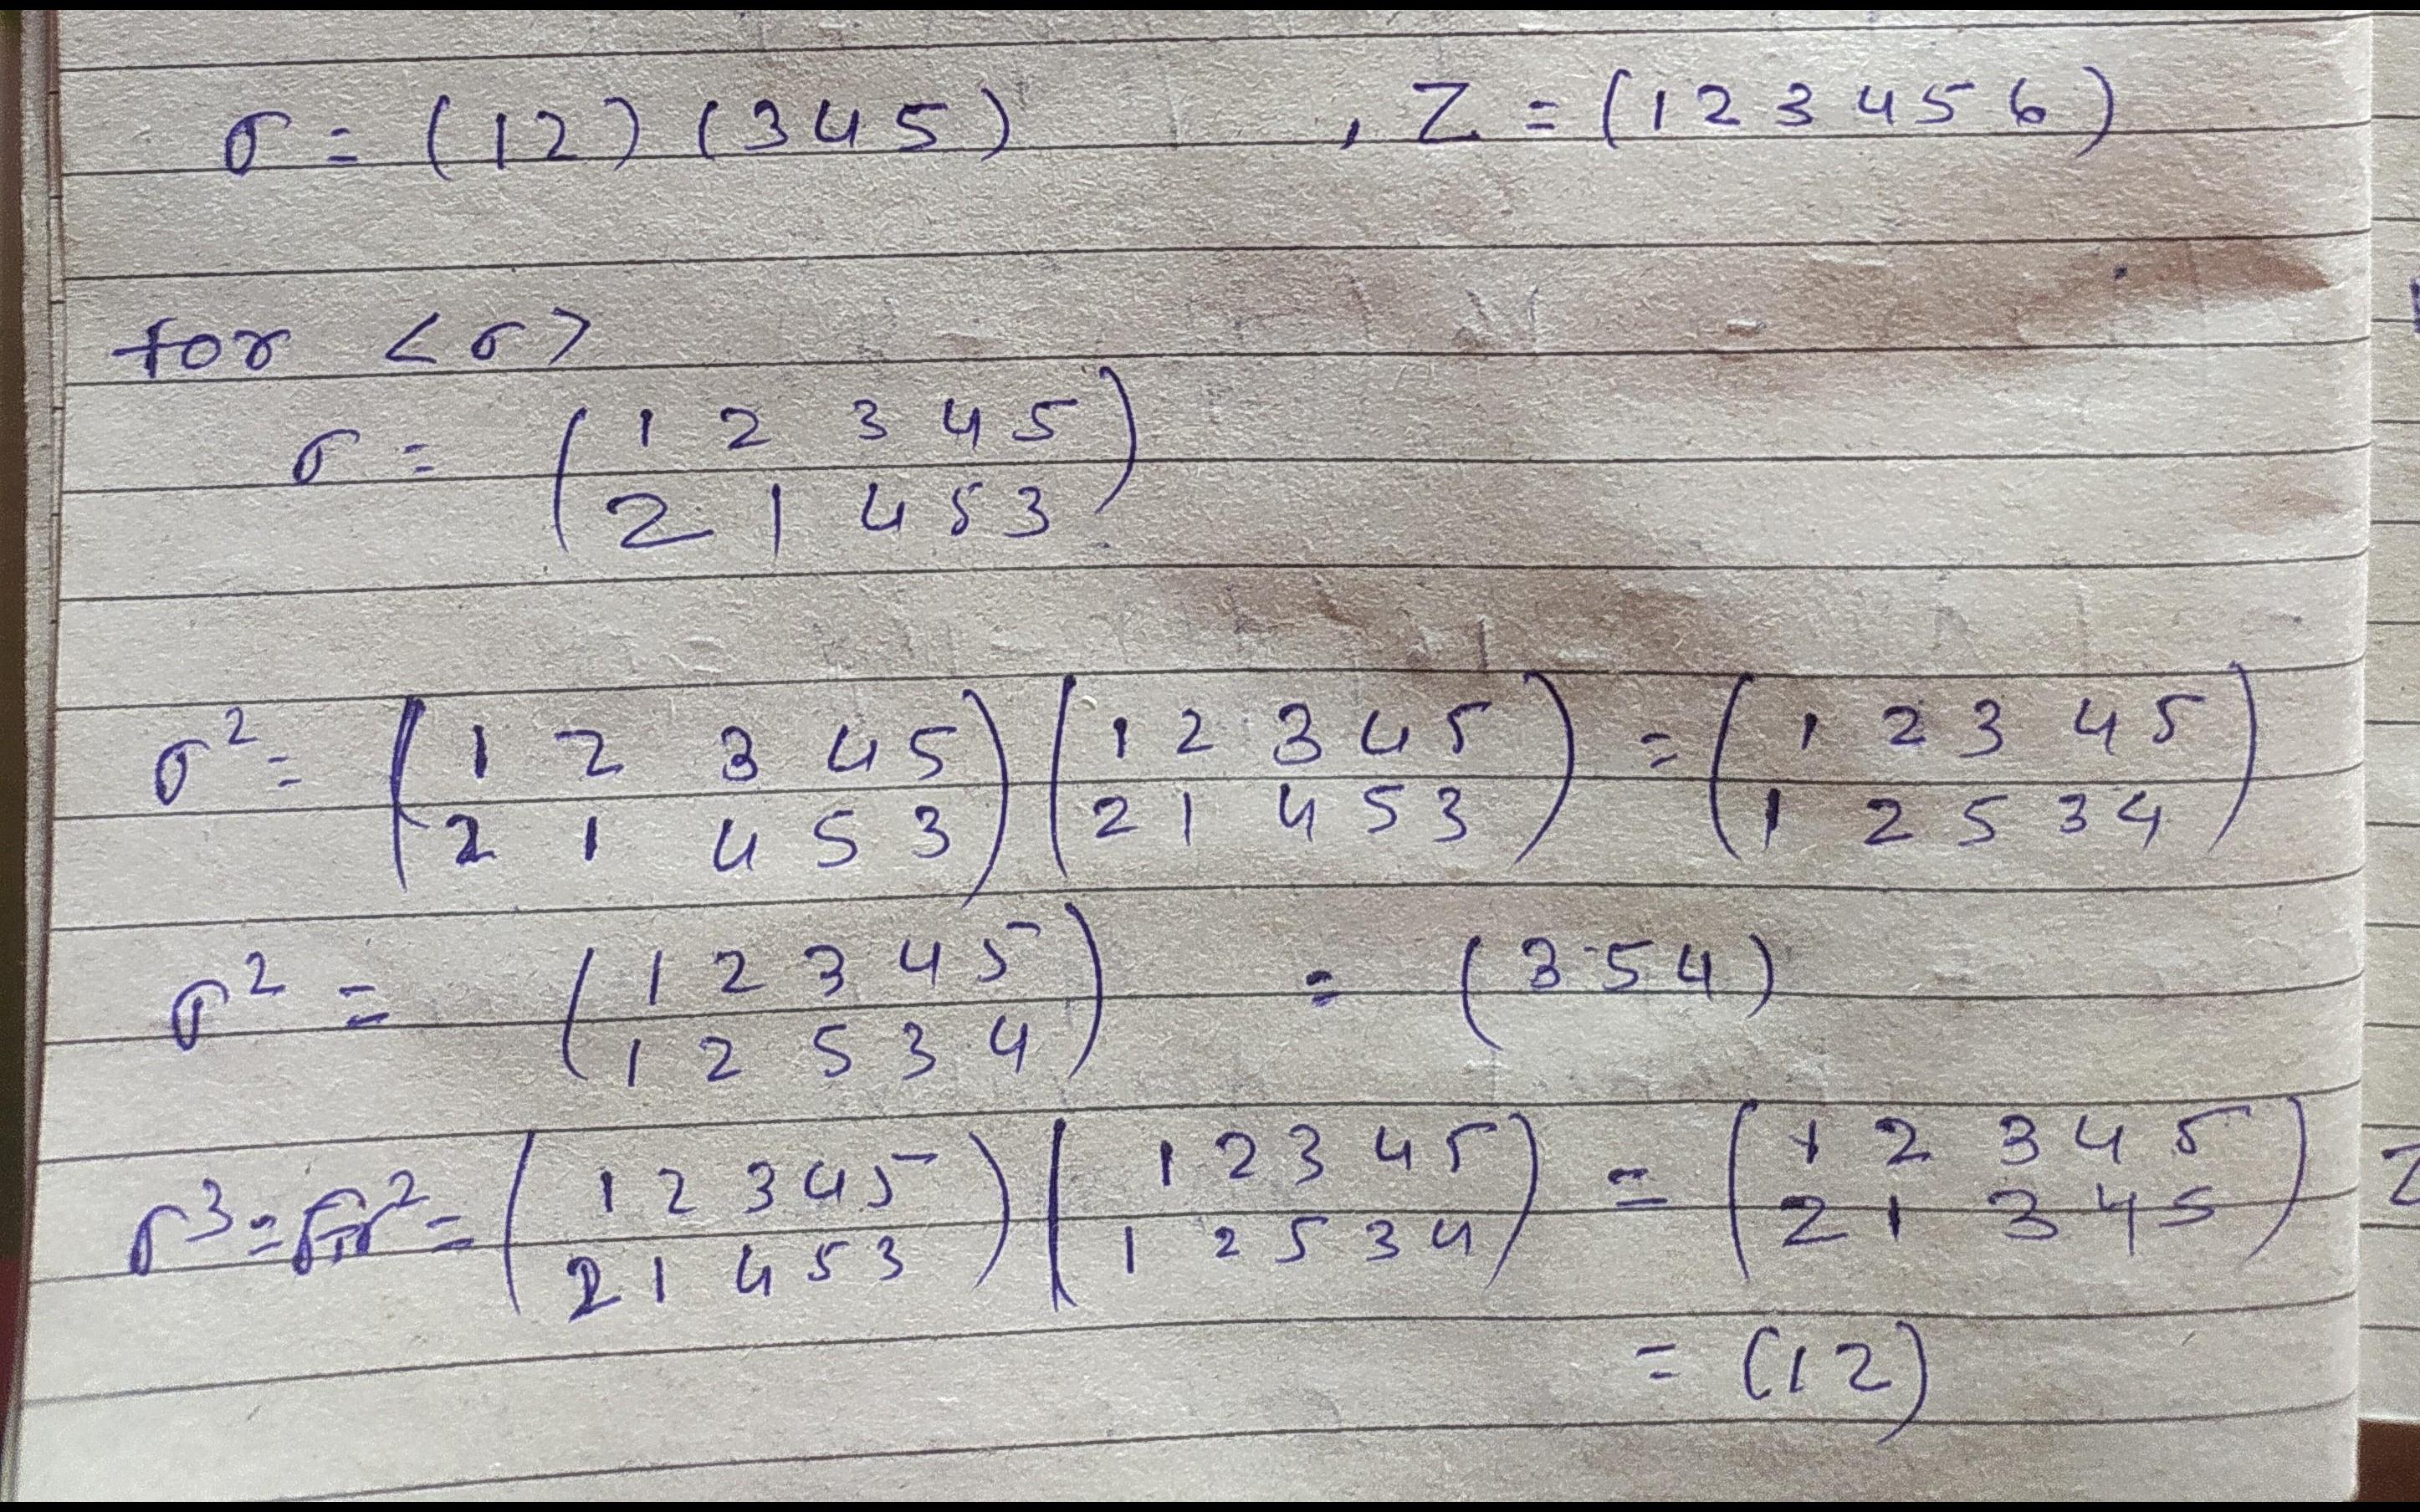 σ = (12) (345) , Z = (1 2 3 4 5 6)
for <σ>
σ = (1 2 3 4 5)
(2 1 4 5 3)
σ² = (1 2 3 4 5) (1 2 3 4 5) = (1 2 3 4 5)
(2 1 4 5 3) (2 1 4 5 3) (1 2 5 3 4)
σ² = (1 2 3 4 5) = (3 5 4)
(1 2 5 3 4)
σ³ = σσ² = (1 2 3 4 5) (1 2 3 4 5) = (1 2 3 4 5)
(2 1 4 5 3) (1 2 5 3 4) (2 1 3 4 5)
= (12)